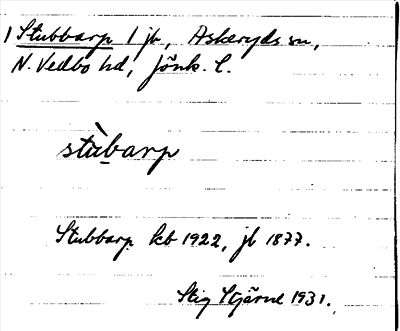 1 Stubbarp 1 jb, Askeryds sn,
N. Vedbo hd, Jönk. l.
stùb̲arp
Stubbarp kb 1922, jb 1877.
Stig Stjärne 1931.